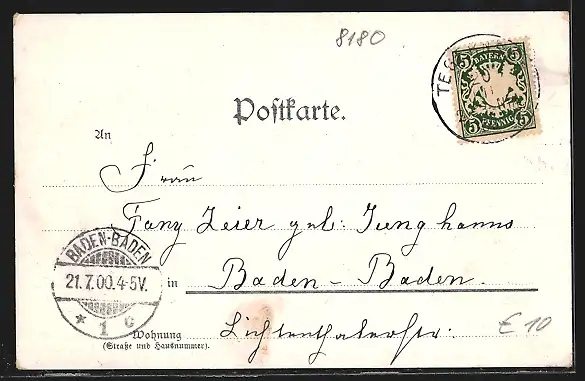 8180
TEG
5 BAYERN 5
5 PFENNIG 5
Postkarte.
An
Frau
Fany Zeier geb: Junghanns
BADEN-BADEN
21.7.00.4-5V.
* 1 c
in Baden-Baden.
Wohnung
(Straße und Hausnummer).
Lichtenthalerstr:
€ 10